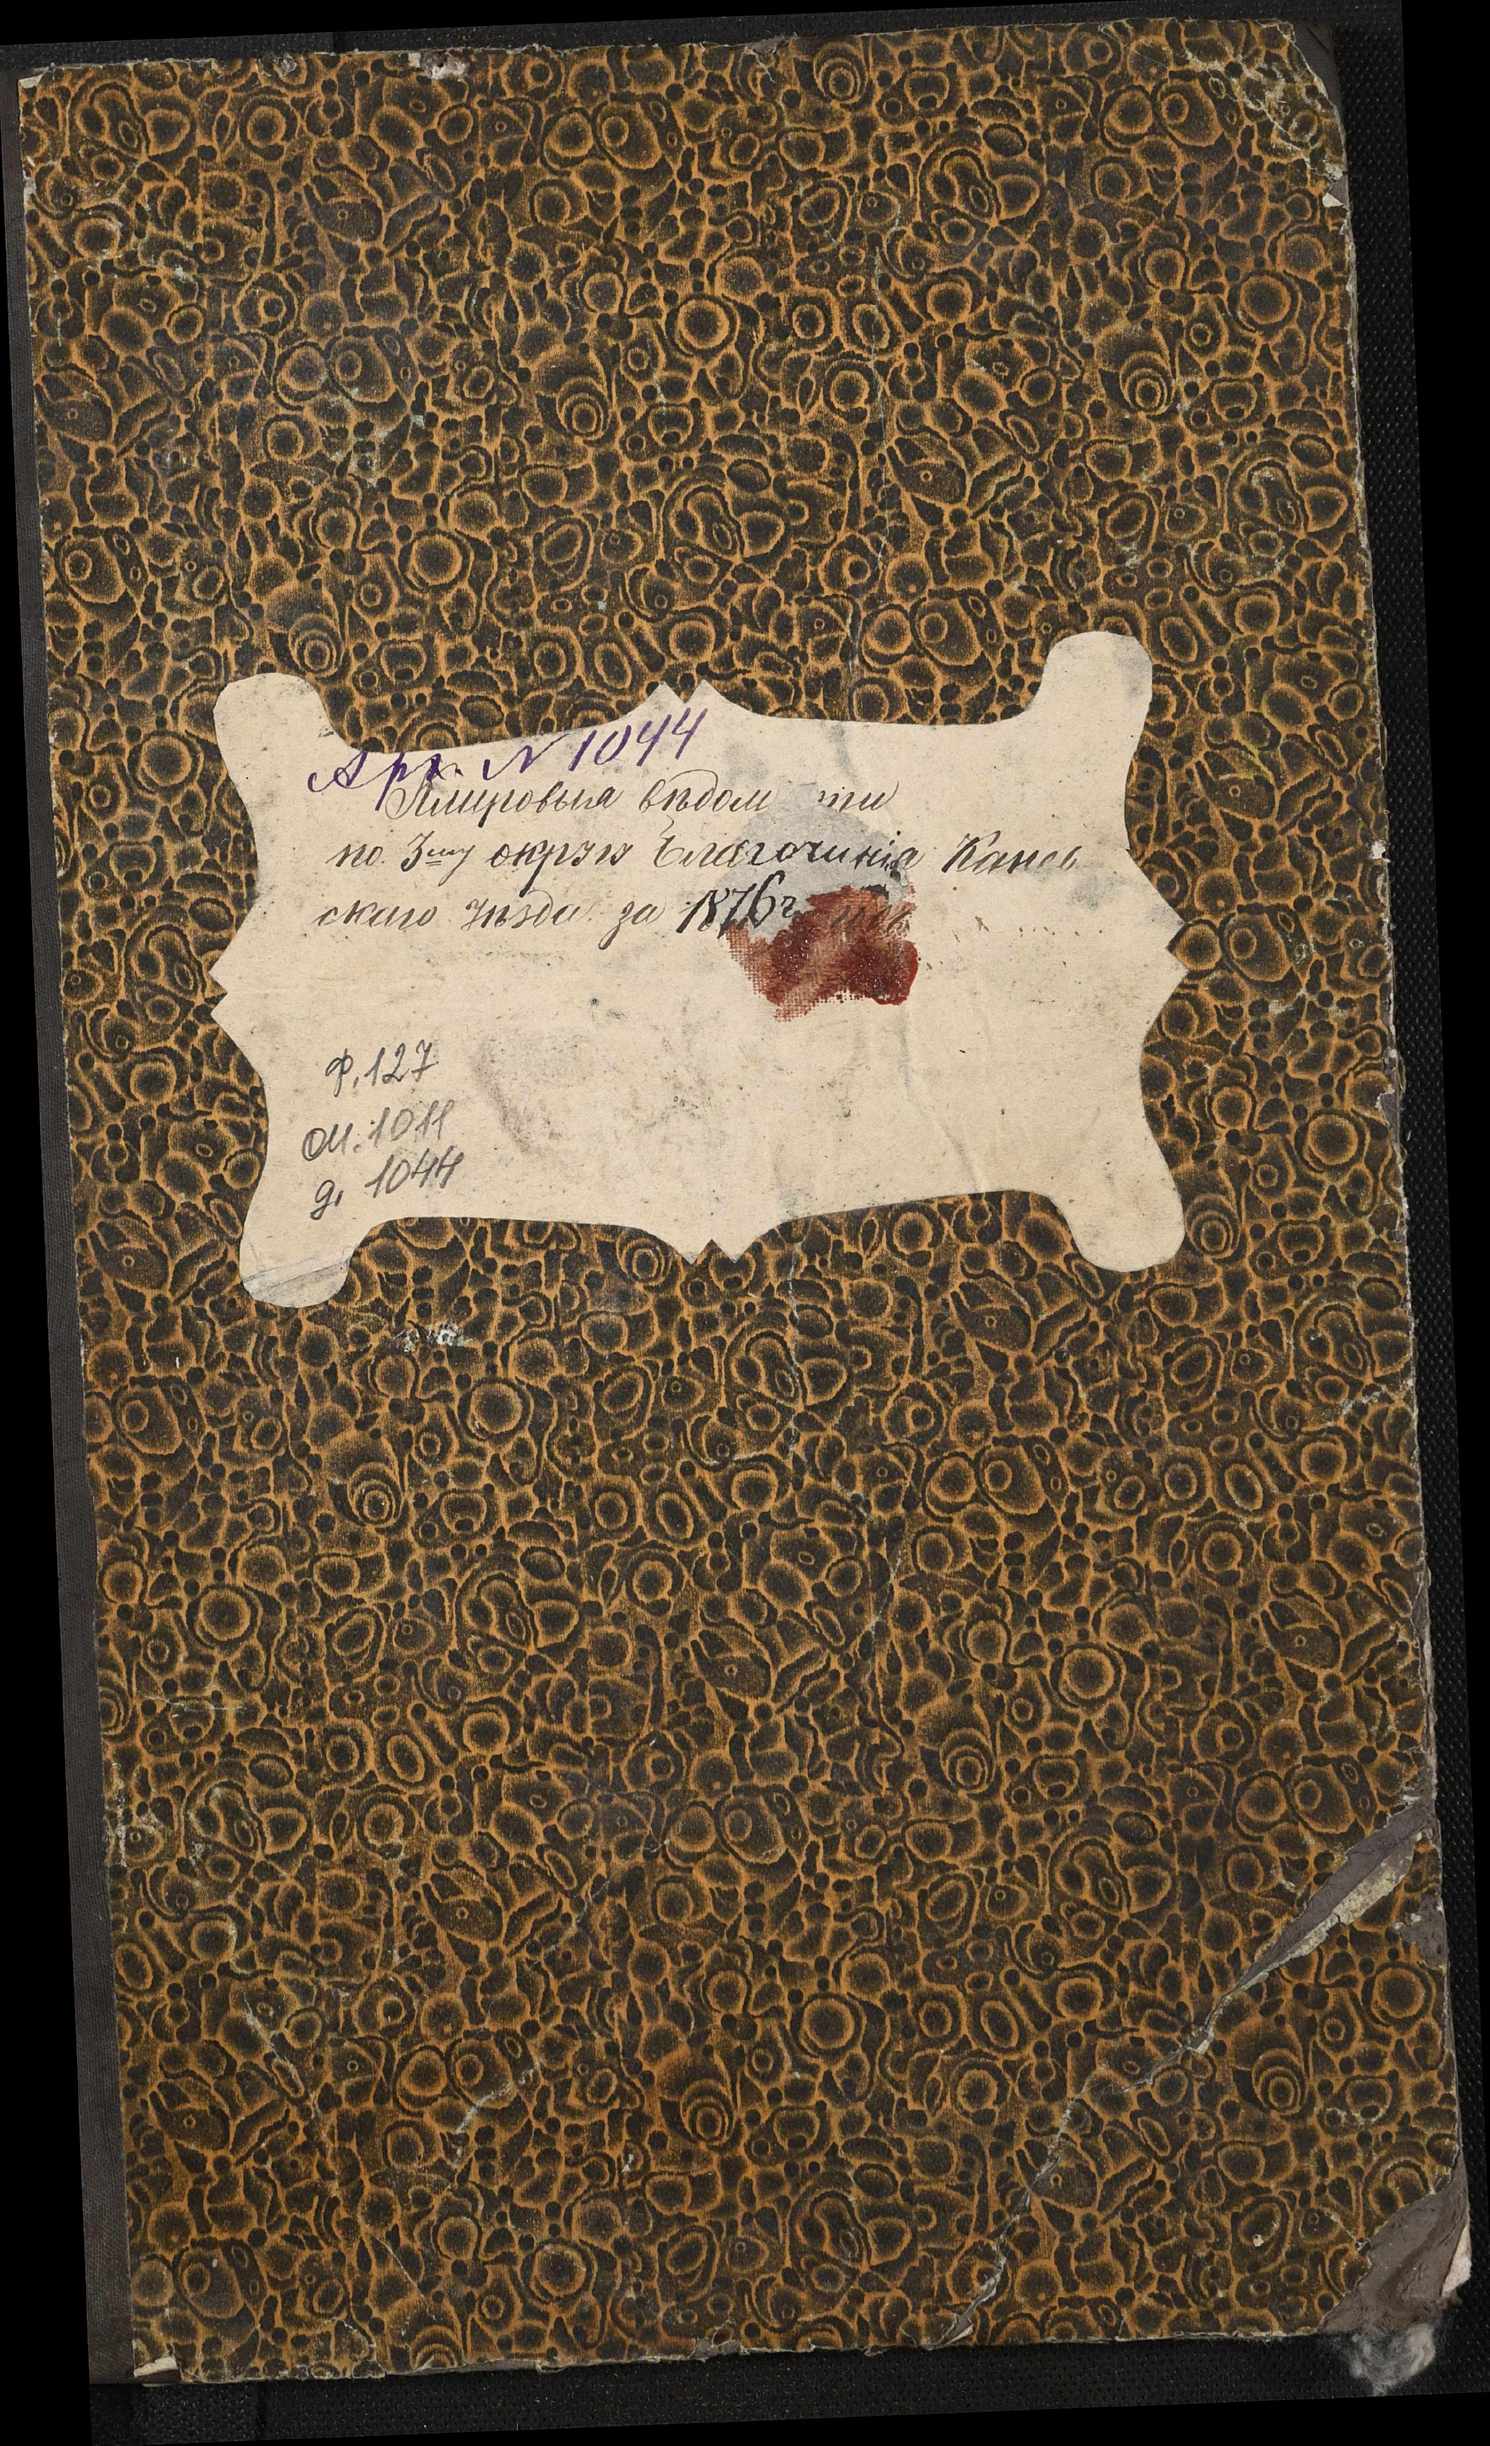 Арх. N 1044
Клировыя вѣдом сти
по 3му округу Благочинія Канев
скаго уѣзда за 1876 г.
Ф. 127
оп. 1011
д. 1044